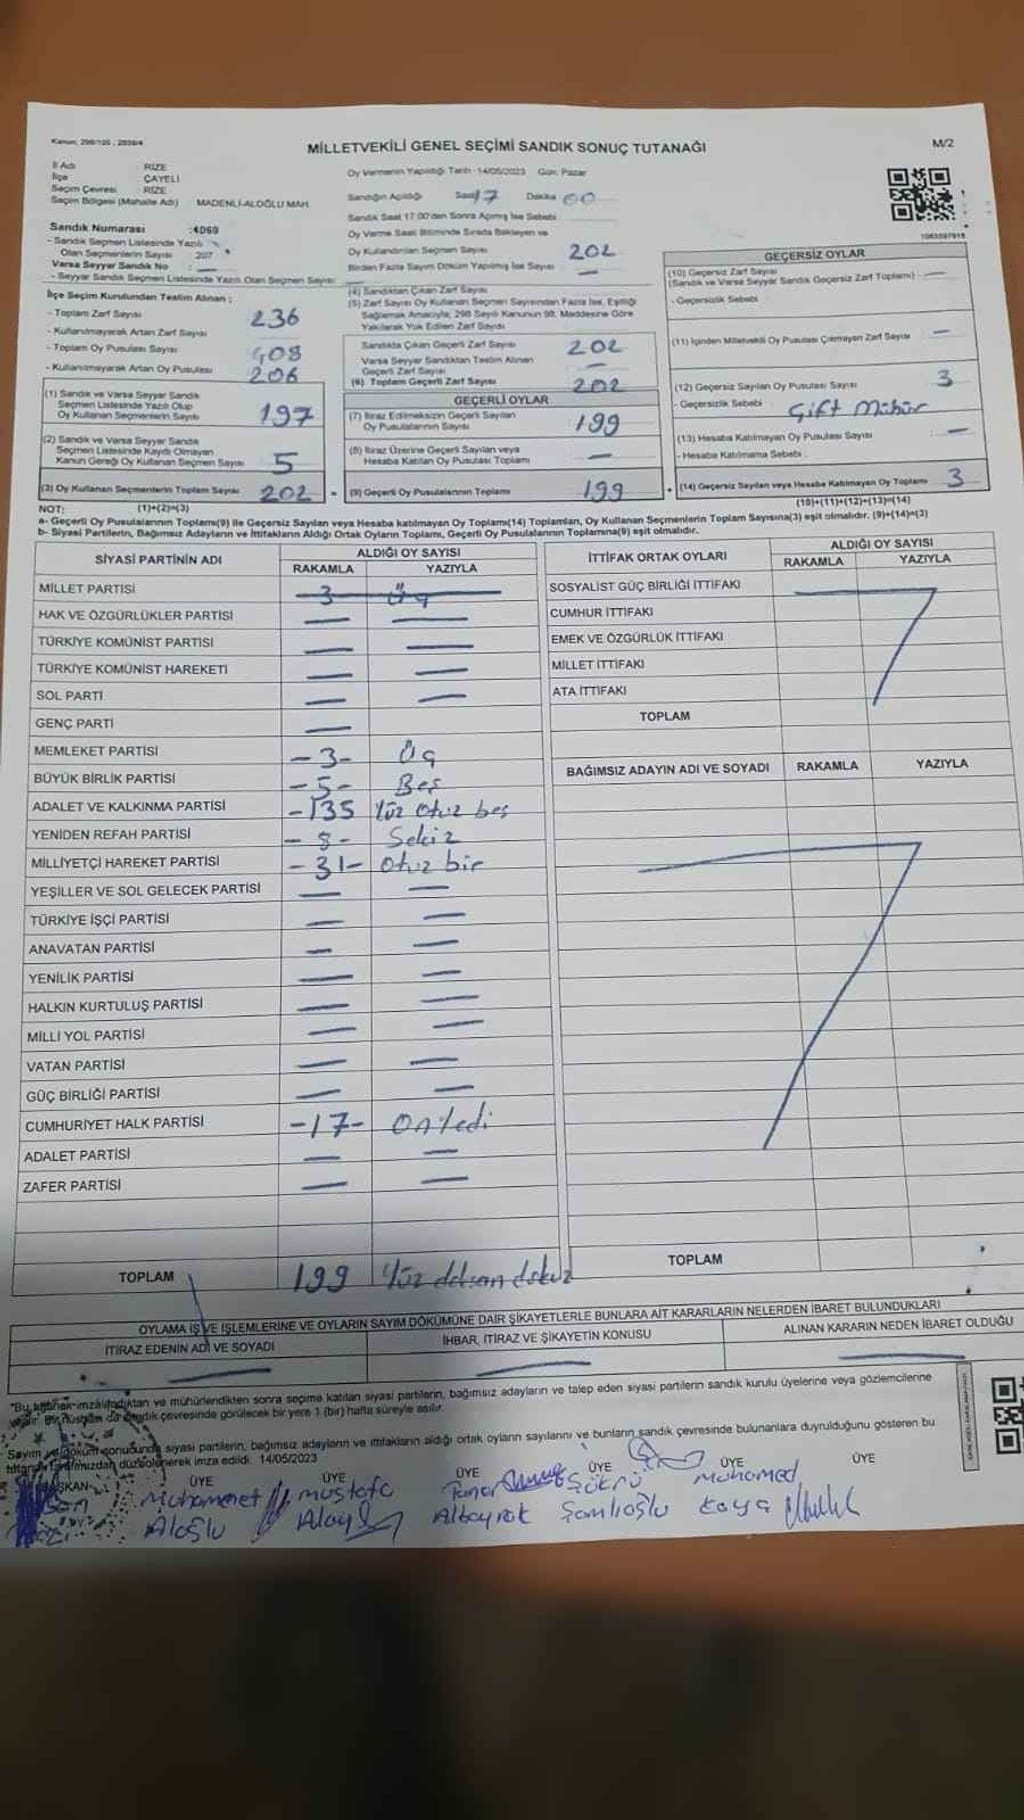 Kanun: 298/105 , 2839/4
MİLLETVEKİLİ GENEL SEÇİMİ SANDIK SONUÇ TUTANAĞI
M/2
İl Adı RİZE
İlçe ÇAYELİ
Seçim Çevresi RİZE
Seçim Bölgesi (Mahalle Adı) MADENLİ-ALOĞLU MAH.
Oy Vermenin Yapıldığı Tarih : 14/05/2023 Gün: Pazar
Sandığın Açıldığı Saat 17 Dakika 00
Sandık Saat 17:00'den Sonra Açılmış İse Sebebi
Oy Verme Saati Bitiminde Sırada Bekleyen ve
Oy Kullandırılan Seçmen Sayısı 202
Birden Fazla Sayım Döküm Yapılmış İse Sayısı —
Sandık Numarası :4069
- Sandık Seçmen Listesinde Yazılı
Olan Seçmenlerin Sayısı 207
Varsa Seyyar Sandık No : —
- Seyyar Sandık Seçmen Listesinde Yazılı Olan Seçmen Sayısı
İlçe Seçim Kurulundan Teslim Alınan ;
- Toplam Zarf Sayısı 236
- Kullanılmayarak Artan Zarf Sayısı
- Toplam Oy Pusulası Sayısı 408
- Kullanılmayarak Artan Oy Pusulası 206
(1) Sandık ve Varsa Seyyar Sandık
Seçmen Listesinde Yazılı Olup
Oy Kullanan Seçmenlerin Sayısı 197
(2) Sandık ve Varsa Seyyar Sandık
Seçmen Listesinde Kaydı Olmayan
Kanun Gereği Oy Kullanan Seçmen Sayısı 5
(3) Oy Kullanan Seçmenlerin Toplam Sayısı 202 =
(4) Sandıktan Çıkan Zarf Sayısı
(5) Zarf Sayısı Oy Kullanan Seçmen Sayısından Fazla İse, Eşitliği
Sağlamak Amacıyla; 298 Sayılı Kanunun 98. Maddesine Göre
Yakılarak Yok Edilen Zarf Sayısı
Sandıkta Çıkan Geçerli Zarf Sayısı 202
Varsa Seyyar Sandıktan Teslim Alınan
Geçerli Zarf Sayısı —
(6) Toplam Geçerli Zarf Sayısı 202
GEÇERLİ OYLAR
(7) İtiraz Edilmeksizin Geçerli Sayılan
Oy Pusulalarının Sayısı 199
(8) İtiraz Üzerine Geçerli Sayılan veya
Hesaba Katılan Oy Pusulası Toplamı —
(9) Geçerli Oy Pusulalarının Toplamı 199 +
GEÇERSİZ OYLAR
(10) Geçersiz Zarf Sayısı
(Sandık ve Varsa Seyyar Sandık Geçersiz Zarf Toplamı) —
- Geçersizlik Sebebi
(11) İçinden Milletvekili Oy Pusulası Çıkmayan Zarf Sayısı —
(12) Geçersiz Sayılan Oy Pusulası Sayısı 3
- Geçersizlik Sebebi Çift Mühür
(13) Hesaba Katılmayan Oy Pusulası Sayısı —
- Hesaba Katılmama Sebebi
(14) Geçersiz Sayılan veya Hesaba Katılmayan Oy Toplamı 3
NOT: (1)+(2)=(3) (10)+(11)+(12)+(13)=(14)
a- Geçerli Oy Pusulalarının Toplamı(9) ile Geçersiz Sayılan veya Hesaba katılmayan Oy Toplamı(14) Toplamları, Oy Kullanan Seçmenlerin Toplam Sayısına(3) eşit olmalıdır. (9)+(14)=(3)
b- Siyasi Partilerin, Bağımsız Adayların ve İttifakların Aldığı Ortak Oyların Toplamı, Geçerli Oy Pusulalarının Toplamına(9) eşit olmalıdır.
SİYASİ PARTİNİN ADI ALDIĞI OY SAYISI
RAKAMLA YAZIYLA
MİLLET PARTİSİ 3 Üç
HAK VE ÖZGÜRLÜKLER PARTİSİ — —
TÜRKİYE KOMÜNİST PARTİSİ — —
TÜRKİYE KOMÜNİST HAREKETİ — —
SOL PARTİ — —
GENÇ PARTİ —
MEMLEKET PARTİSİ -3- Üç
BÜYÜK BİRLİK PARTİSİ -5- Beş
ADALET VE KALKINMA PARTİSİ -135 Yüz Otuz beş
YENİDEN REFAH PARTİSİ -8- Sekiz
MİLLİYETÇİ HAREKET PARTİSİ -31- Otuz bir
YEŞİLLER VE SOL GELECEK PARTİSİ — —
TÜRKİYE İŞÇİ PARTİSİ — —
ANAVATAN PARTİSİ — —
YENİLİK PARTİSİ — —
HALKIN KURTULUŞ PARTİSİ — —
MİLLİ YOL PARTİSİ — —
VATAN PARTİSİ — —
GÜÇ BİRLİĞİ PARTİSİ — —
CUMHURİYET HALK PARTİSİ -17- On Yedi
ADALET PARTİSİ — —
ZAFER PARTİSİ — —
TOPLAM 199 Yüz doksan dokuz
İTTİFAK ORTAK OYLARI ALDIĞI OY SAYISI
RAKAMLA YAZIYLA
SOSYALİST GÜÇ BİRLİĞİ İTTİFAKI
CUMHUR İTTİFAKI
EMEK VE ÖZGÜRLÜK İTTİFAKI
MİLLET İTTİFAKI
ATA İTTİFAKI
TOPLAM
BAĞIMSIZ ADAYIN ADI VE SOYADI RAKAMLA YAZIYLA
TOPLAM
OYLAMA İŞ VE İŞLEMLERİNE VE OYLARIN SAYIM DÖKÜMÜNE DAİR ŞİKAYETLERLE BUNLARA AİT KARARLARIN NELERDEN İBARET BULUNDUKLARI
İTİRAZ EDENİN ADI VE SOYADI İHBAR, İTİRAZ VE ŞİKAYETİN KONUSU ALINAN KARARIN NEDEN İBARET OLDUĞU
"Bu tutanak imzalandıktan ve mühürlendikten sonra seçime katılan siyasi partilerin, bağımsız adayların ve talep eden siyasi partilerin sandık kurulu üyelerine veya gözlemcilerine
verilir. Bir nüshası da sandık çevresinde görülecek bir yere 1 (bir) hafta süreyle asılır.
Sayım ve döküm sonucunda siyasi partilerin, bağımsız adayların ve ittifakların aldığı ortak oyların sayılarını ve bunların sandık çevresinde bulunanlara duyrulduğunu gösteren bu
tutanak tarafımızdan düzenlenerek imza edildi. 14/05/2023
BAŞKAN ÜYE ÜYE ÜYE ÜYE ÜYE ÜYE
Muhammet Mustafa Şükrü Mohamed
Aloğlu Albayrak Şamlıoğlu Kaya